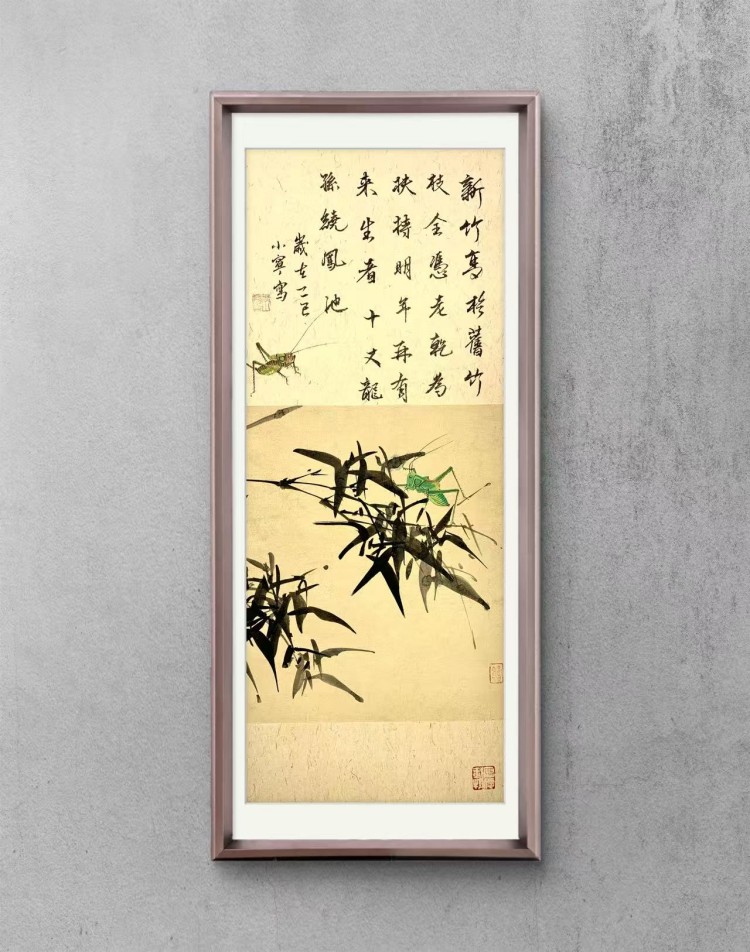 新竹高於舊竹
枝全憑老乾為
扶持明年再有
来生者十丈龍
孫繞鳳池
歲在乙巳
小寧寫